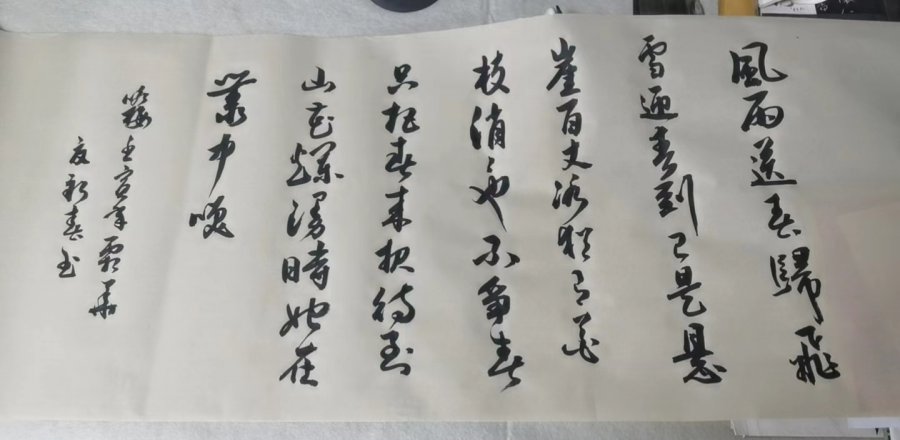 風雨送春歸飛
雪迎春到已是懸
崖百丈冰猶有花
枝俏也不爭春
只把春來報待到
山花爛漫時她在
叢中咲
度新春书